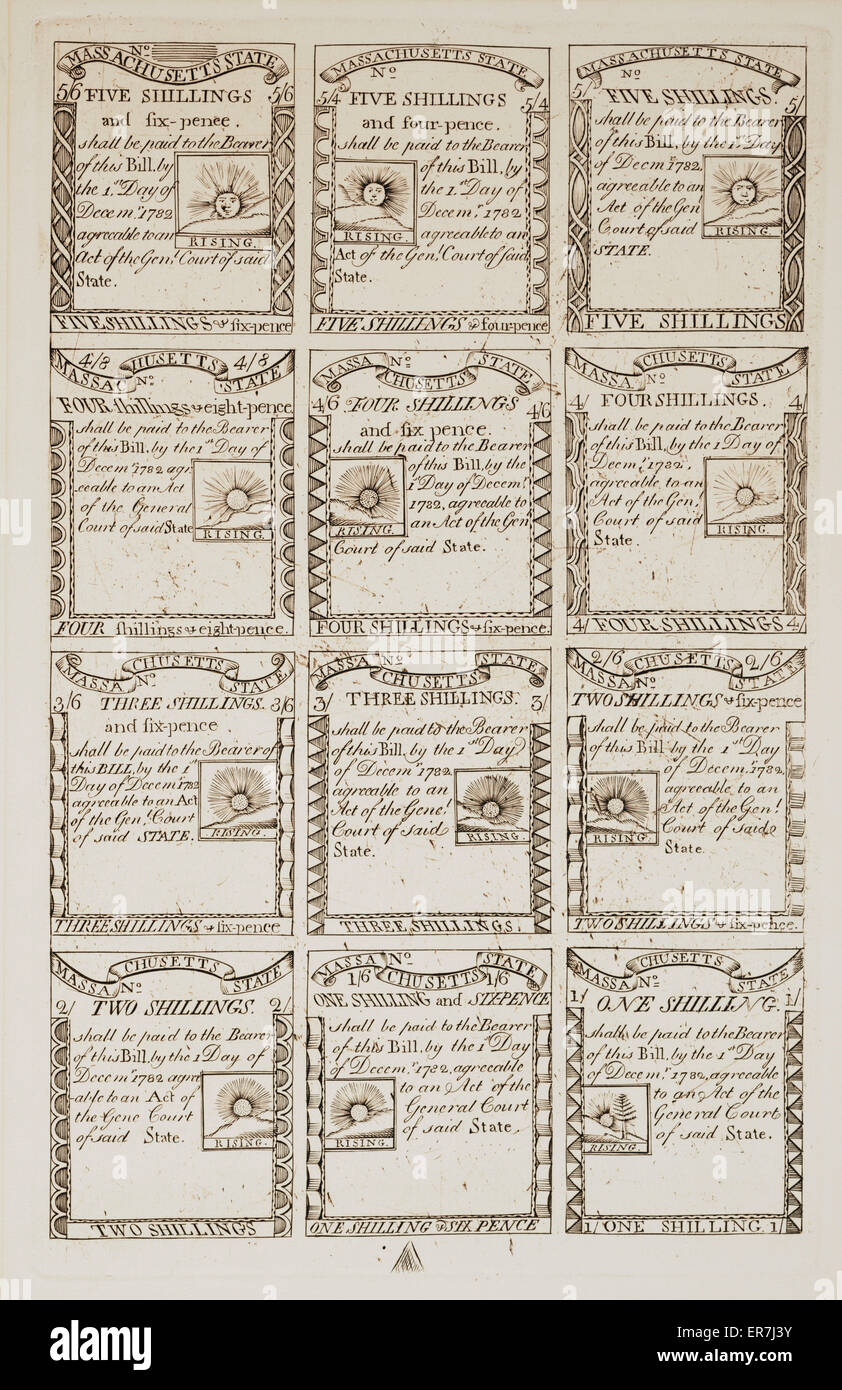 MASSACHUSETTS STATE
No
5/6 FIVE SHILLINGS 5/6
and six-pence.
shall be paid to the Bearer
of this Bill, by
the 1.st Day of
Decem.r 1782
agreeable to an
Act of the Gen.l Court of said
State.
RISING.
FIVE SHILLINGS & six-pence
MASSACHUSETTS STATE
No
5/4 FIVE SHILLINGS 5/4
and four-pence.
shall be paid to the Bearer
of this Bill, by
the 1.st Day of
Decem.r 1782
agreeable to an
Act of the Gen.l Court of said
State.
RISING.
FIVE SHILLINGS & four-pence
MASSACHUSETTS STATE
No
5/ FIVE SHILLINGS. 5/
shall be paid to the Bearer
of this Bill, by the 1.st Day
of Decm.r 1782,
agreeable to an
Act of the Gen.l
Court of said
STATE.
RISING.
FIVE SHILLINGS
4/8 4/8
MASSACHUSETTS STATE
No
FOUR shillings & eight-pence
shall be paid to the Bearer
of this Bill, by the 1st Day of
Decem.r 1782 agre
eable to an Act
of the General
Court of said State
RISING.
FOUR shillings & eight-pence.
MASSACHUSETTS STATE
No
4/6 FOUR SHILLINGS 4/6
and six pence.
shall be paid to the Bearer
of this Bill, by the
1st Day of Decem.r
1782, agreeable to
an Act of the Gen.l
Court of said State.
RISING.
FOUR SHILLINGS & six-pence.
MASSACHUSETTS STATE
No
4/ FOUR SHILLINGS. 4/
shall be paid to the Bearer
of this Bill, by the 1 Day of
Decm.r 1782,
agreeable to an
Act of the Gen.l
Court of said
State.
RISING.
4/ FOUR SHILLINGS 4/
MASSACHUSETTS STATE
No
3/6 THREE SHILLINGS. 3/6
and six-pence.
shall be paid to the Bearer of
this BILL, by the 1st
Day of Decem.r 1782
agreeable to an Act
of the Gen.l Court
of said STATE.
RISING.
THREE SHILLINGS & six-pence
MASSACHUSETTS STATE
No
3/ THREE SHILLINGS. 3/
shall be paid to the Bearer
of this Bill, by the 1st Day
of Decem.r 1782
agreeable to an
Act of the Gene.l
Court of said
State.
RISING.
THREE SHILLINGS.
2/6 2/6
MASSACHUSETTS STATE
No
TWO SHILLINGS & six-pence
shall be paid to the Bearer
of this Bill by the 1st Day
of Decem.r 1782,
agreeable to an
Act of the Gen.l
Court of said
State.
RISING.
TWO SHILLINGS & six-pence.
MASSACHUSETTS STATE
No
2/ TWO SHILLINGS. 2/
shall be paid to the Bearer
of this Bill, by the 1 Day of
Decem.r 1782 agree
able to an Act of
the Gene Court
of said State.
RISING.
TWO SHILLINGS
MASSACHUSETTS STATE
No
1/6 1/6
ONE SHILLING and SIXPENCE
shall be paid to the Bearer
of this Bill, by the 1st Day
of Decem.r 1782, agreeable
to an Act of the
General Court
of said State,
RISING.
ONE SHILLING & SIX PENCE
MASSACHUSETTS STATE
No
1/ ONE SHILLING. 1/
shall be paid to the Bearer
of this Bill, by the 1st Day
of Decem.r 1782, agreeable
to an Act of the
General Court
of said State.
RISING.
1/ ONE SHILLING. 1/
alamy
Image ID: ER7J3Y
www.alamy.com